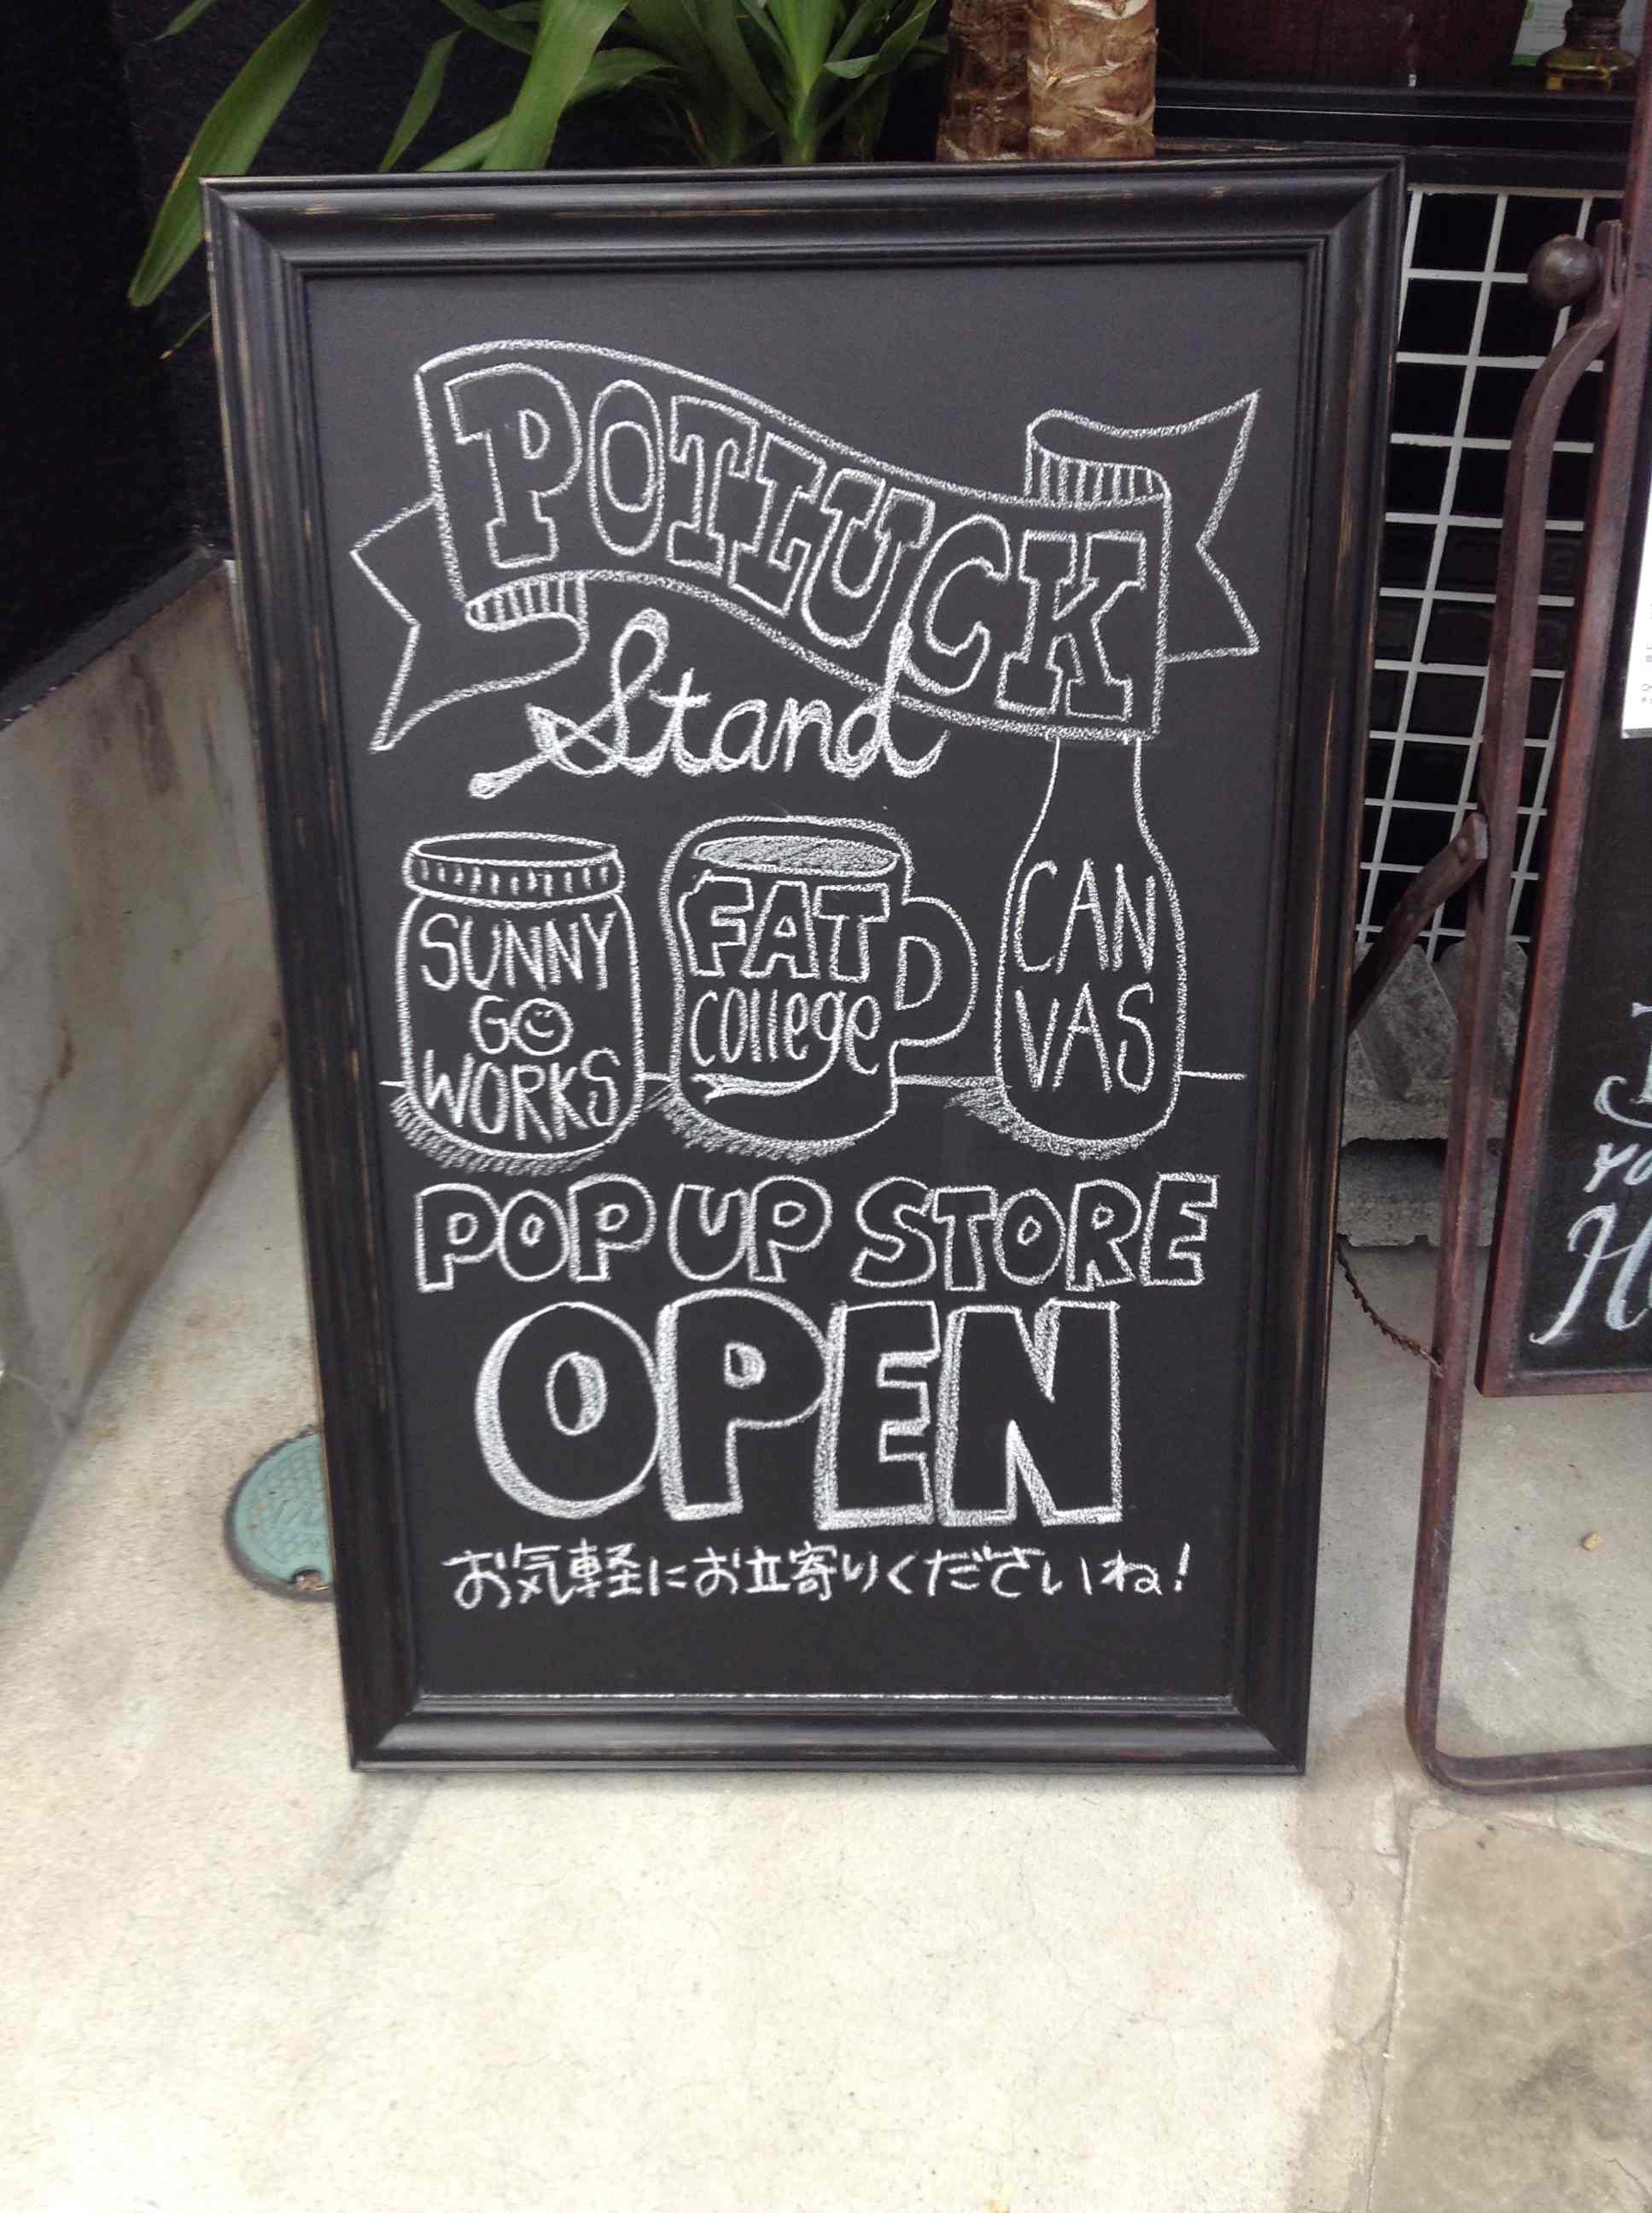 POTLUCK
Stand
SUNNY
GO
WORKS
FAT
college
CAN
VAS
POP UP STORE
OPEN
お気軽にお立寄りくださいね!